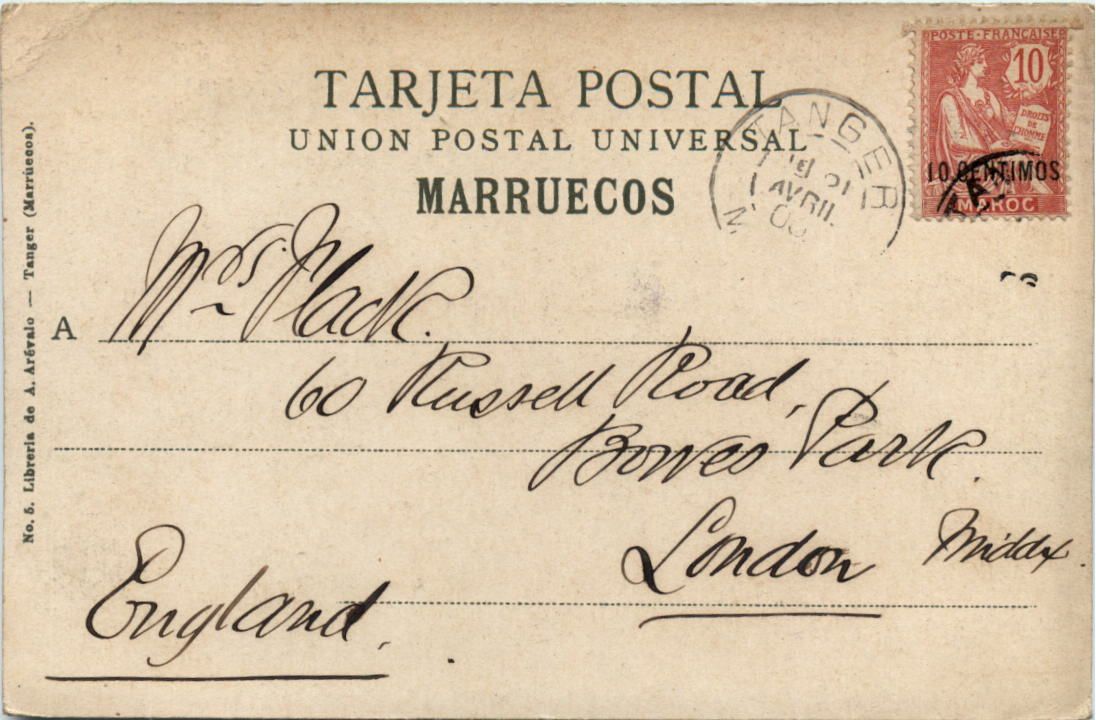 TARJETA POSTAL
UNION POSTAL UNIVERSAL
MARRUECOS
POSTE FRANÇAISE
10
DROITS
DE
L'HOMME
10 CENTIMOS
MAROC
TANGER
AVRIL
A Mrs. Flack.
60 Russell Road,
Bowes Park.
London Middx.
England.
No. 5. Librería de A. Arévalo — Tanger (Marruecos).